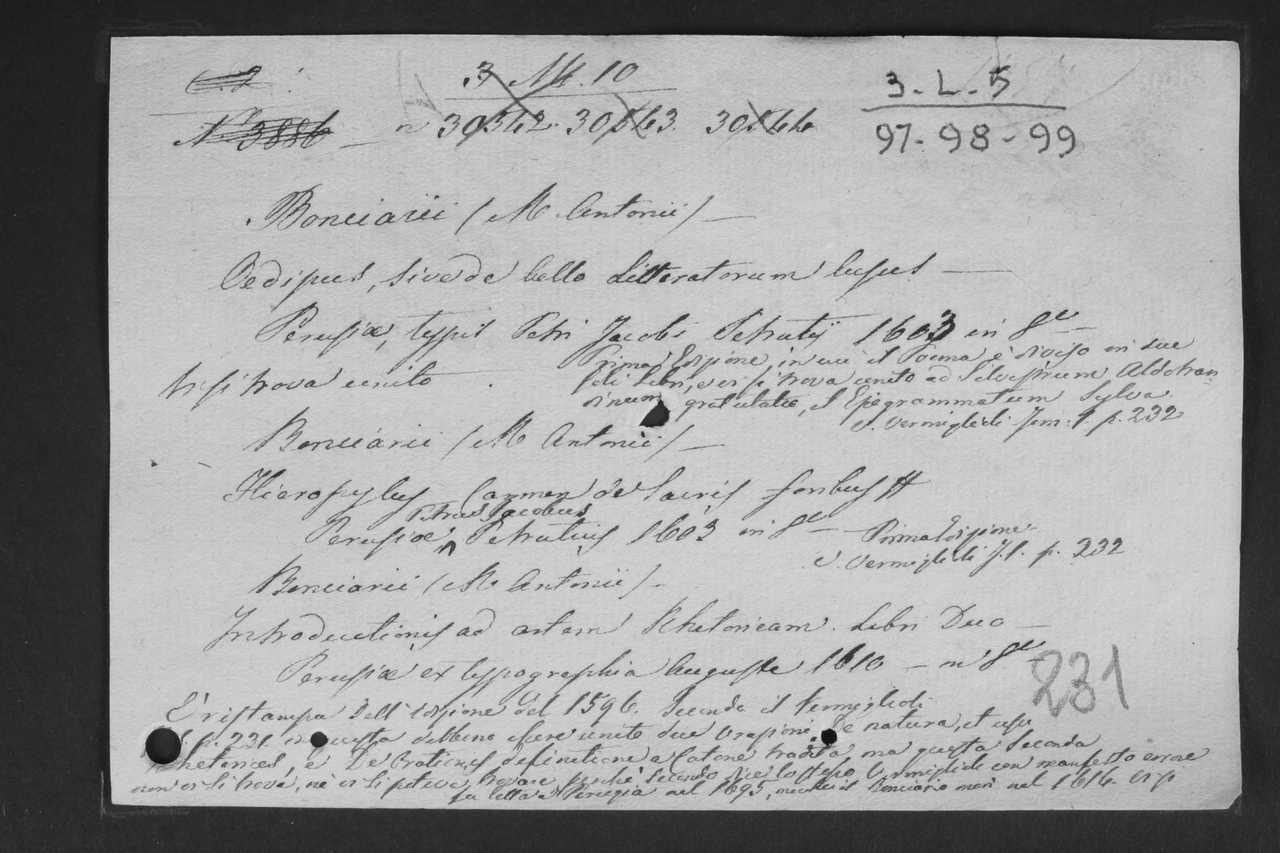 3 M. 10
3-L-5
Nº 3886 - nº 30342. 30343. 30344
97-98-99
Bonciarii (M. Antonii) —
Oedipus, sive de bello Litteratorum lusus —
Perusiæ, typis Petri Jacobi Petrutii 1603 in 8º
Prima Edizione, in cui il Poema è diviso in due
vi si trova unito
soli Libri, e vi si trova unito ad Silvestrum Aldobran-
dinum gratulatio, et Epigrammatum Sylva.
V. Vermiglioli Tom: 1 p. 232
Bonciarii (M. Antonii) —
Hieropylus, Carmen de Sacris foribus #
Petrus Jacobus
Perusiæ ^ Petrutius 1603 in 8º — Prima Edizione
V. Vermiglioli T.1. p. 232
Bonciarii (M. Antonii) —
Introductionis ad artem Rhetoricam. Libri Duo —
Perusiæ ex typographia Augusta 1610 — in 8º
231
È ristampa dell'edizione del 1596. Secondo il Vermiglioli
p. 231. in questa debbono essere unite due Orazioni, De natura, et usu
Rhetorices, e De Orationis definitione a Catone tradita ma questa Seconda
non vi si trova, nè vi si poteva trovare, perchè secondo dice lo stesso Vermiglioli con manifesto errore
fu letta a Perugia nel 1695, mentre il Bonciario morì nel 1616.